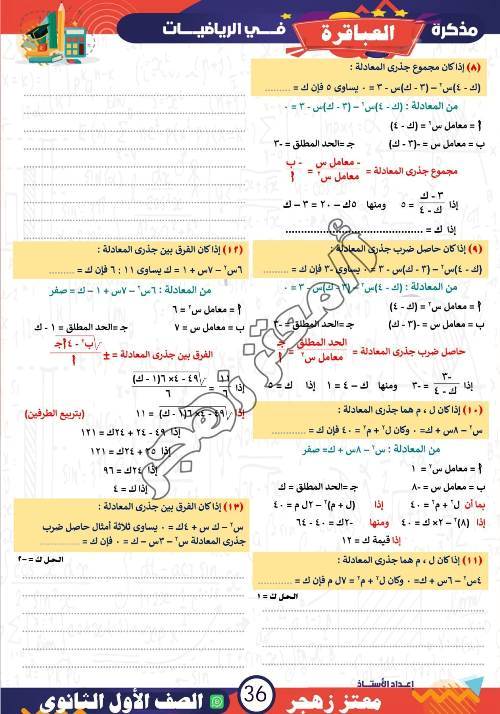 مذكرة العباقرة في الرياضيات
(٨) إذا كان مجموع جذرى المعادلة :
(ك - ٤)س٢ - (٣ - ك)س - ٣ = ٠ يساوى ٥ فإن ك = ............
من المعادلة : (ك - ٤)س٢ - (٣ - ك)س - ٣ = ٠
أ = معامل س٢ = (ك - ٤)
ب = معامل س = -(٣ - ك) جـ = الحد المطلق = -٣
مجموع جذرى المعادلة = - معامل س / معامل س٢ = - ب / أ
إذا ٣ - ك / ك - ٤ = ٥ ومنها ٥ك - ٢٠ = ٣ - ك
إذا ك = ............
(٩) إذا كان حاصل ضرب جذرى المعادلة :
(ك - ٤)س٢ - (٣ - ك)س - ٣ = ٠ يساوى -٣ فإن ك = ............
من المعادلة : (ك - ٤)س٢ - (٣ - ك)س - ٣ = ٠
أ = معامل س٢ = (ك - ٤)
ب = معامل س = -(٣ - ك) جـ = الحد المطلق = -٣
حاصل ضرب جذرى المعادلة = الحد المطلق / معامل س٢ = جـ / أ
إذا -٣ / ك - ٤ = -٣ ومنها ك - ٤ = ١ إذا ك = ٥
(١٠) إذا كان ل ، م هما جذرى المعادلة :
س٢ - ٨س + ك = ٠ وكان ل٢ + م٢ = ٤٠ فإن ك = ............
من المعادلة : س٢ - ٨س + ك = صفر
أ = معامل س٢ = ١
ب = معامل س = -٨ جـ = الحد المطلق = ك
بما أن ل٢ + م٢ = ٤٠ إذا (ل + م)٢ - ٢ل م = ٤٠
إذا (٨)٢ - ٢× ك = ٤٠ ومنها -٢ك = ٤٠ - ٦٤
إذا قيمة ك = ١٢
(١١) إذا كان ل ، م هما جذرى المعادلة :
٤س٢ - ٦س + ك = ٠ وكان ل٢ + م٢ = ٧ل م فإن ك = ............
الحل ك = ١
(١٢) إذا كان الفرق بين جذرى المعادلة :
٦س٢ - ٧س + ١ = ك يساوى ١١ : ٦ فإن ك = ............
من المعادلة : ٦س٢ - ٧س + ١ - ك = صفر
أ = معامل س٢ = ٦
ب = معامل س = ٧ جـ = الحد المطلق = ١ - ك
الفرق بين جذرى المعادلة = ± √ب٢ - ٤أجـ / أ
إذا ١١ / ٦ = √٤٩ - ٤× ٦(١ - ك) / ٦
إذا √٤٩ - ٤× ٦(١ - ك) = ١١ (بتربيع الطرفين)
إذا ٤٩ - ٢٤ + ٢٤ك = ١٢١
إذا ٢٥ + ٢٤ك = ١٢١
إذا ٢٤ك = ٩٦
إذا ك = ٤
(١٣) إذا كان الفرق بين جذرى المعادلة :
س٢ - ك س + ٤ك = ٠ يساوى ثلاثة أمثال حاصل ضرب
جذرى المعادلة س٢ - ٣س - ك = ٠ فإن ك = ............
الحل ك = -٢
أ/ معتز زهجر
إعداد الأستاذ
معتز زهجر 36 الصف الأول الثانوى